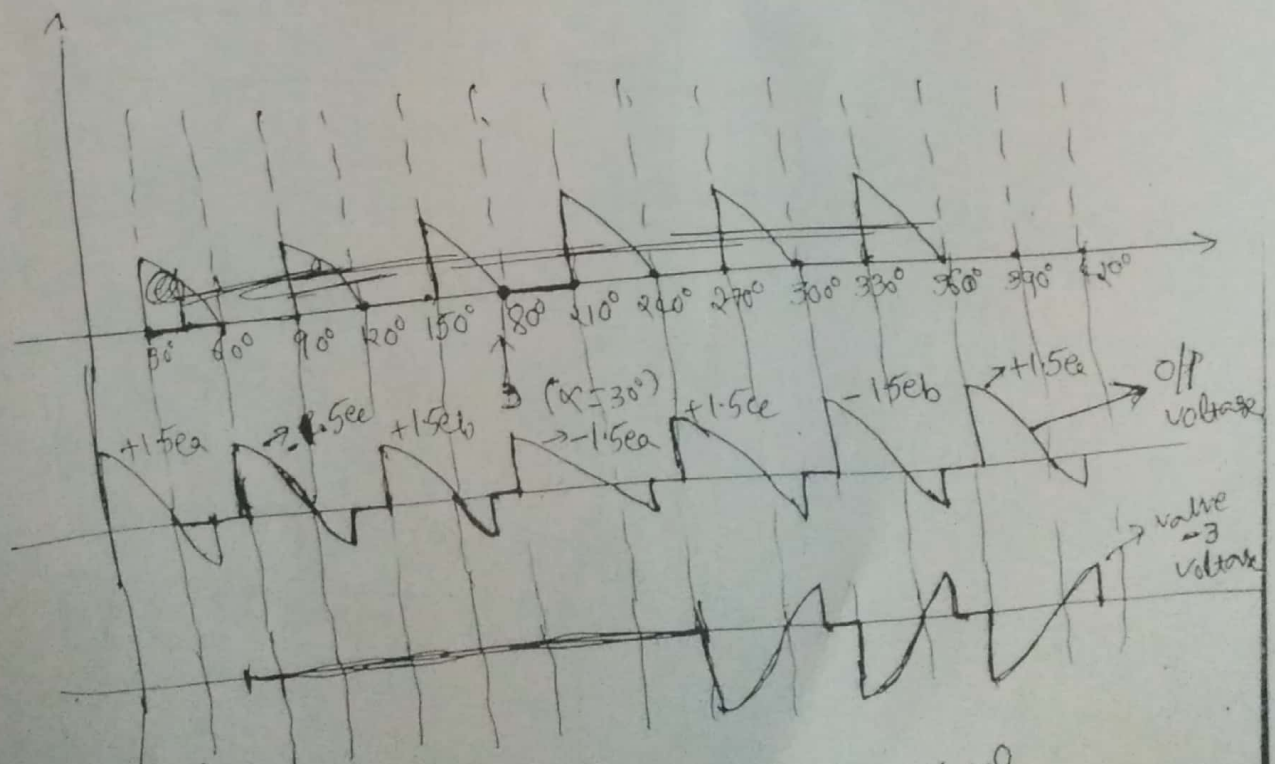 30° 60° 90° 120° 150° 180° 210° 240° 270° 300° 330° 360° 390° 420°
3 (α=30°)
+1.5ea
+1.5eb
→-1.5ea
-1.5eb
→+1.5ea
O/P
voltage
valve
-3
voltage